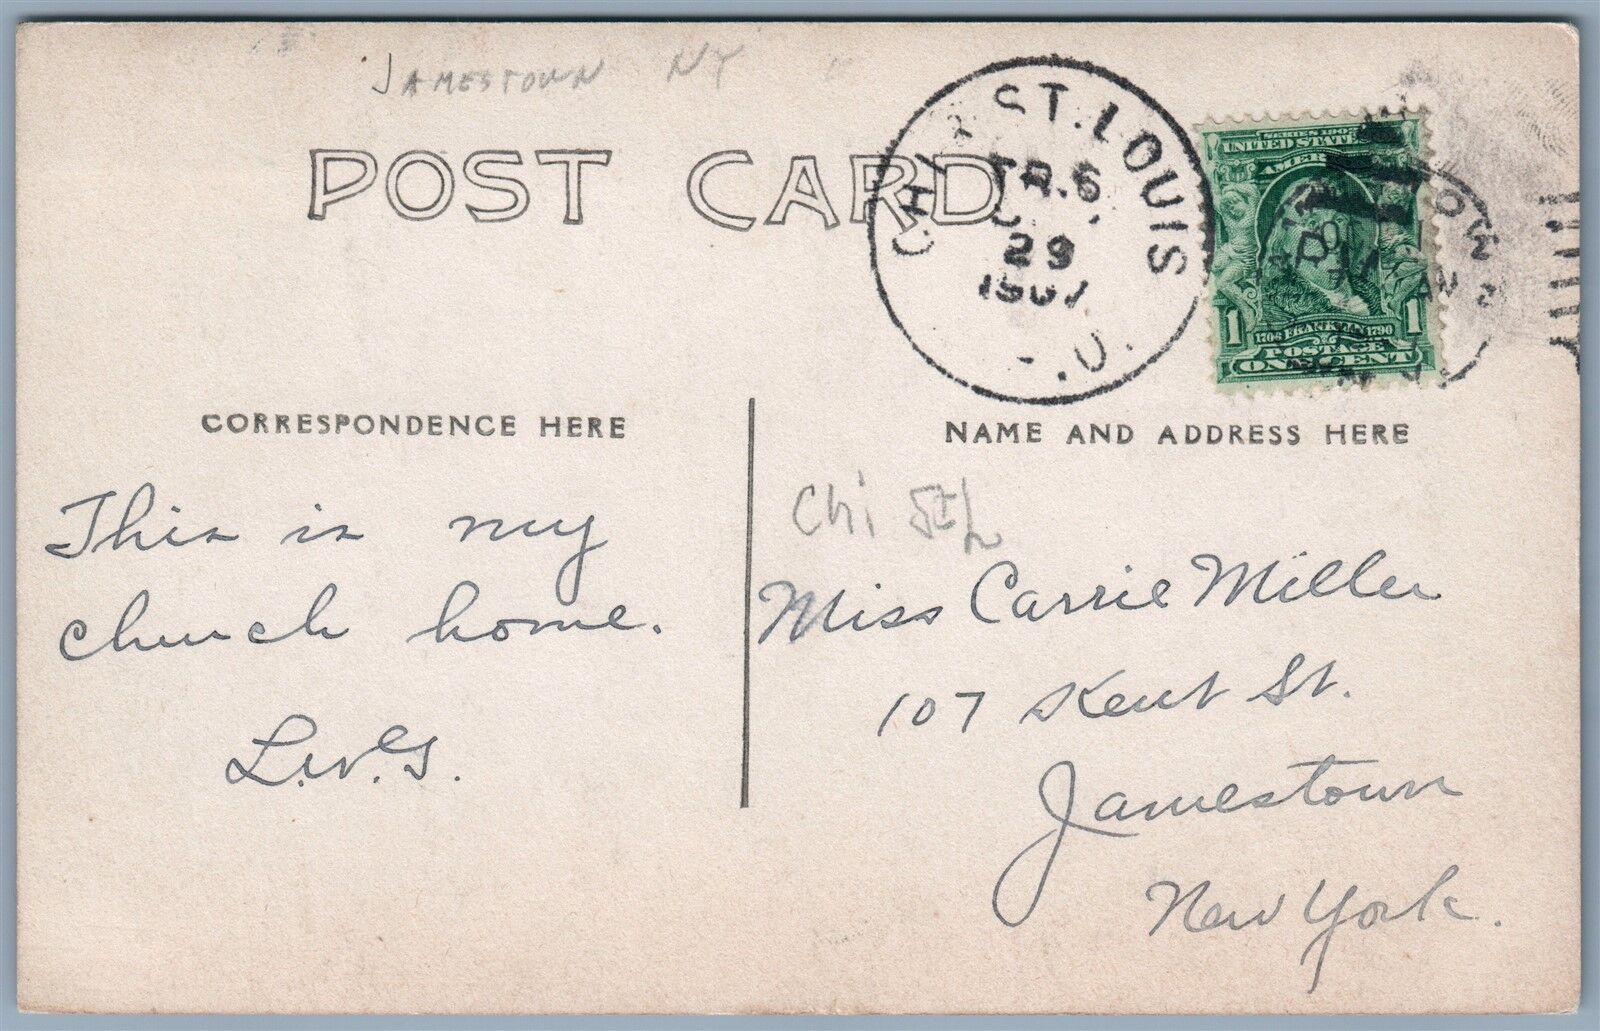 JAMESTOWN NY
POST CARD
CHI & ST. LOUIS
TR. 6
29
1907
SERIES 1902
UNITED STATES
AMER
1 1706 FRANKLIN 1790 1
POSTAGE
ONE CENT
CORRESPONDENCE HERE
NAME AND ADDRESS HERE
This is my
church home.
Chi StL
Miss Carrie Miller
107 Kent St.
Jamestown
New York.